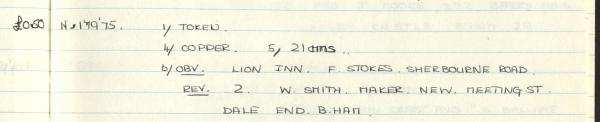 £0.50 N.179'75. 1/ TOKEN.
4/ COPPER. 5/ 21cms..
6/ OBV. LION INN. F. STOKES. SHERBOURNE ROAD.
REV. 2. W. SMITH. MAKER. NEW. MEETING ST.
DALE END. B.HAM.